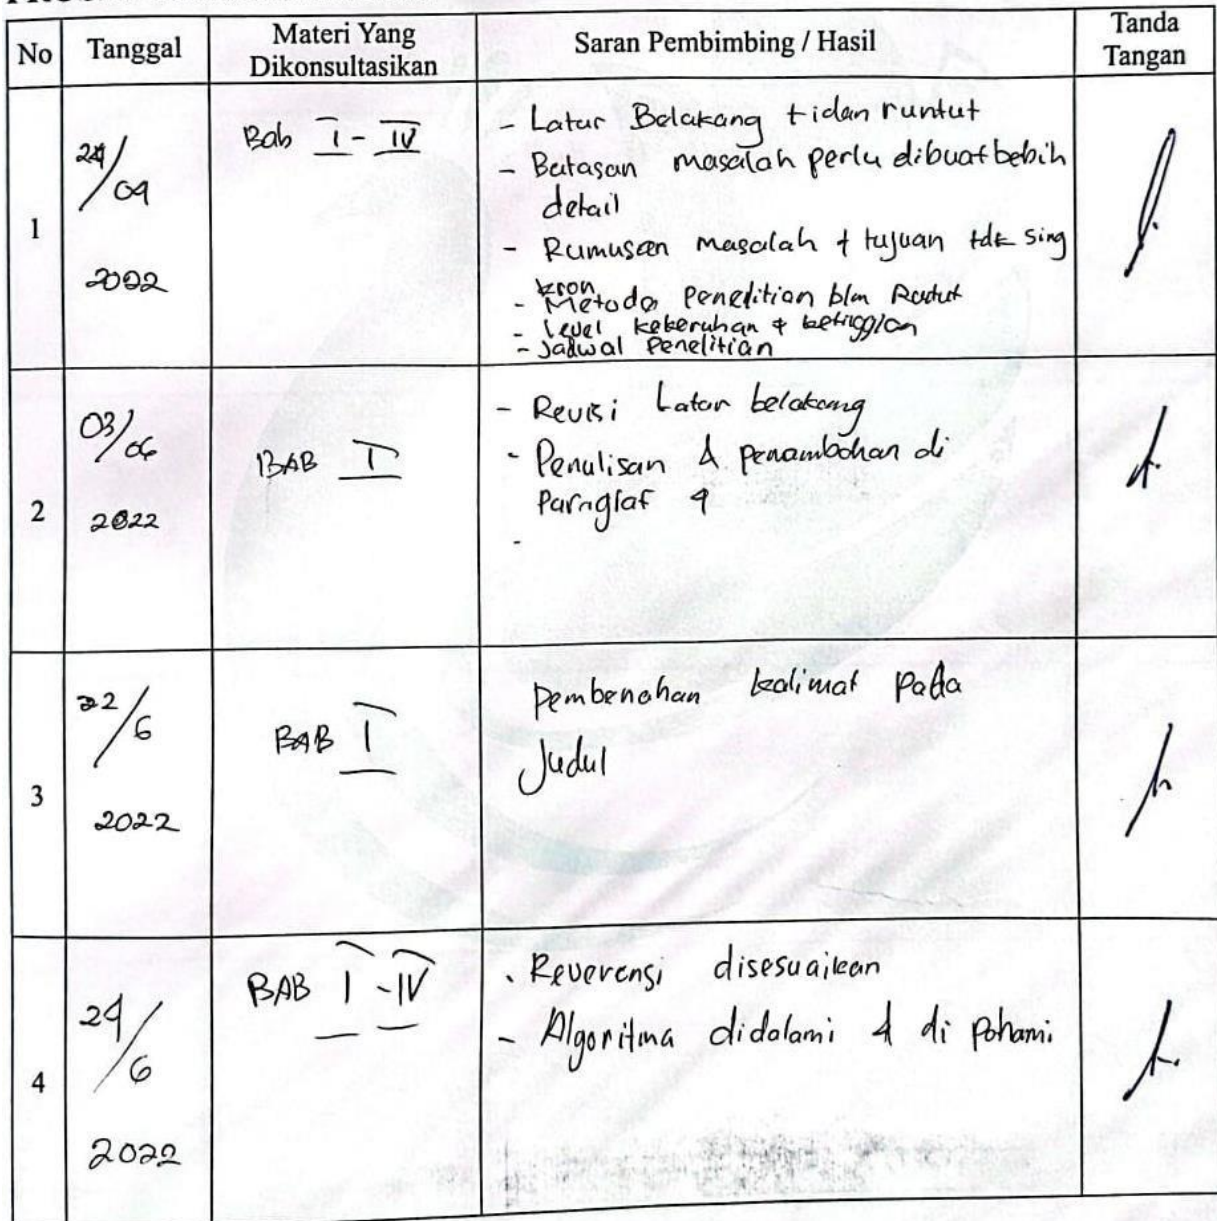 No Tanggal Materi Yang Dikonsultasikan Saran Pembimbing / Hasil Tanda Tangan
1
24/04
2022
Bab I - IV
- Latar Belakang tidan runtut
- Batasan masalah perlu dibuat bebih
detail
- Rumusan masalah & tujuan tdk sing
kron
- Metoda Penelitian blm
- Level kekeruhan & ketinggian
- Jadwal Penelitian
2
03/06
2022
BAB I
- Revisi Latar belakang
- Penulisan & penambahan di
Paragraf 4
-
3
22/6
2022
BAB I
Pembenahan kalimat Pada
Judul
4
24/6
2022
BAB I - IV
- Reverensi disesuaikan
- Algoritma didalami & di pahami